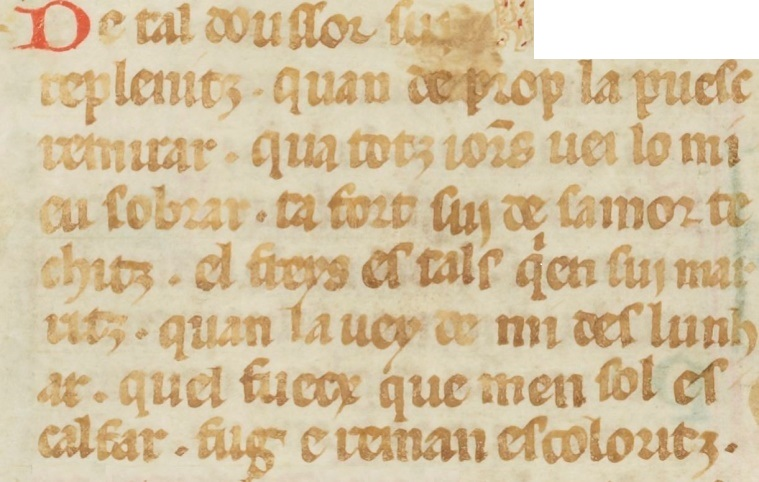 De tal doussor suy
replenitz · quan de prop la puesc
remirar · qua totz iorns uei lo mi
eu sobrar · ta fort suy de samor te
chitz · el freys es tals q̇en suy mar
ritz · quan la uey de mi deslunh
ar · quel fuecx que men sol es
calfar · fug e reman escoloritz ·